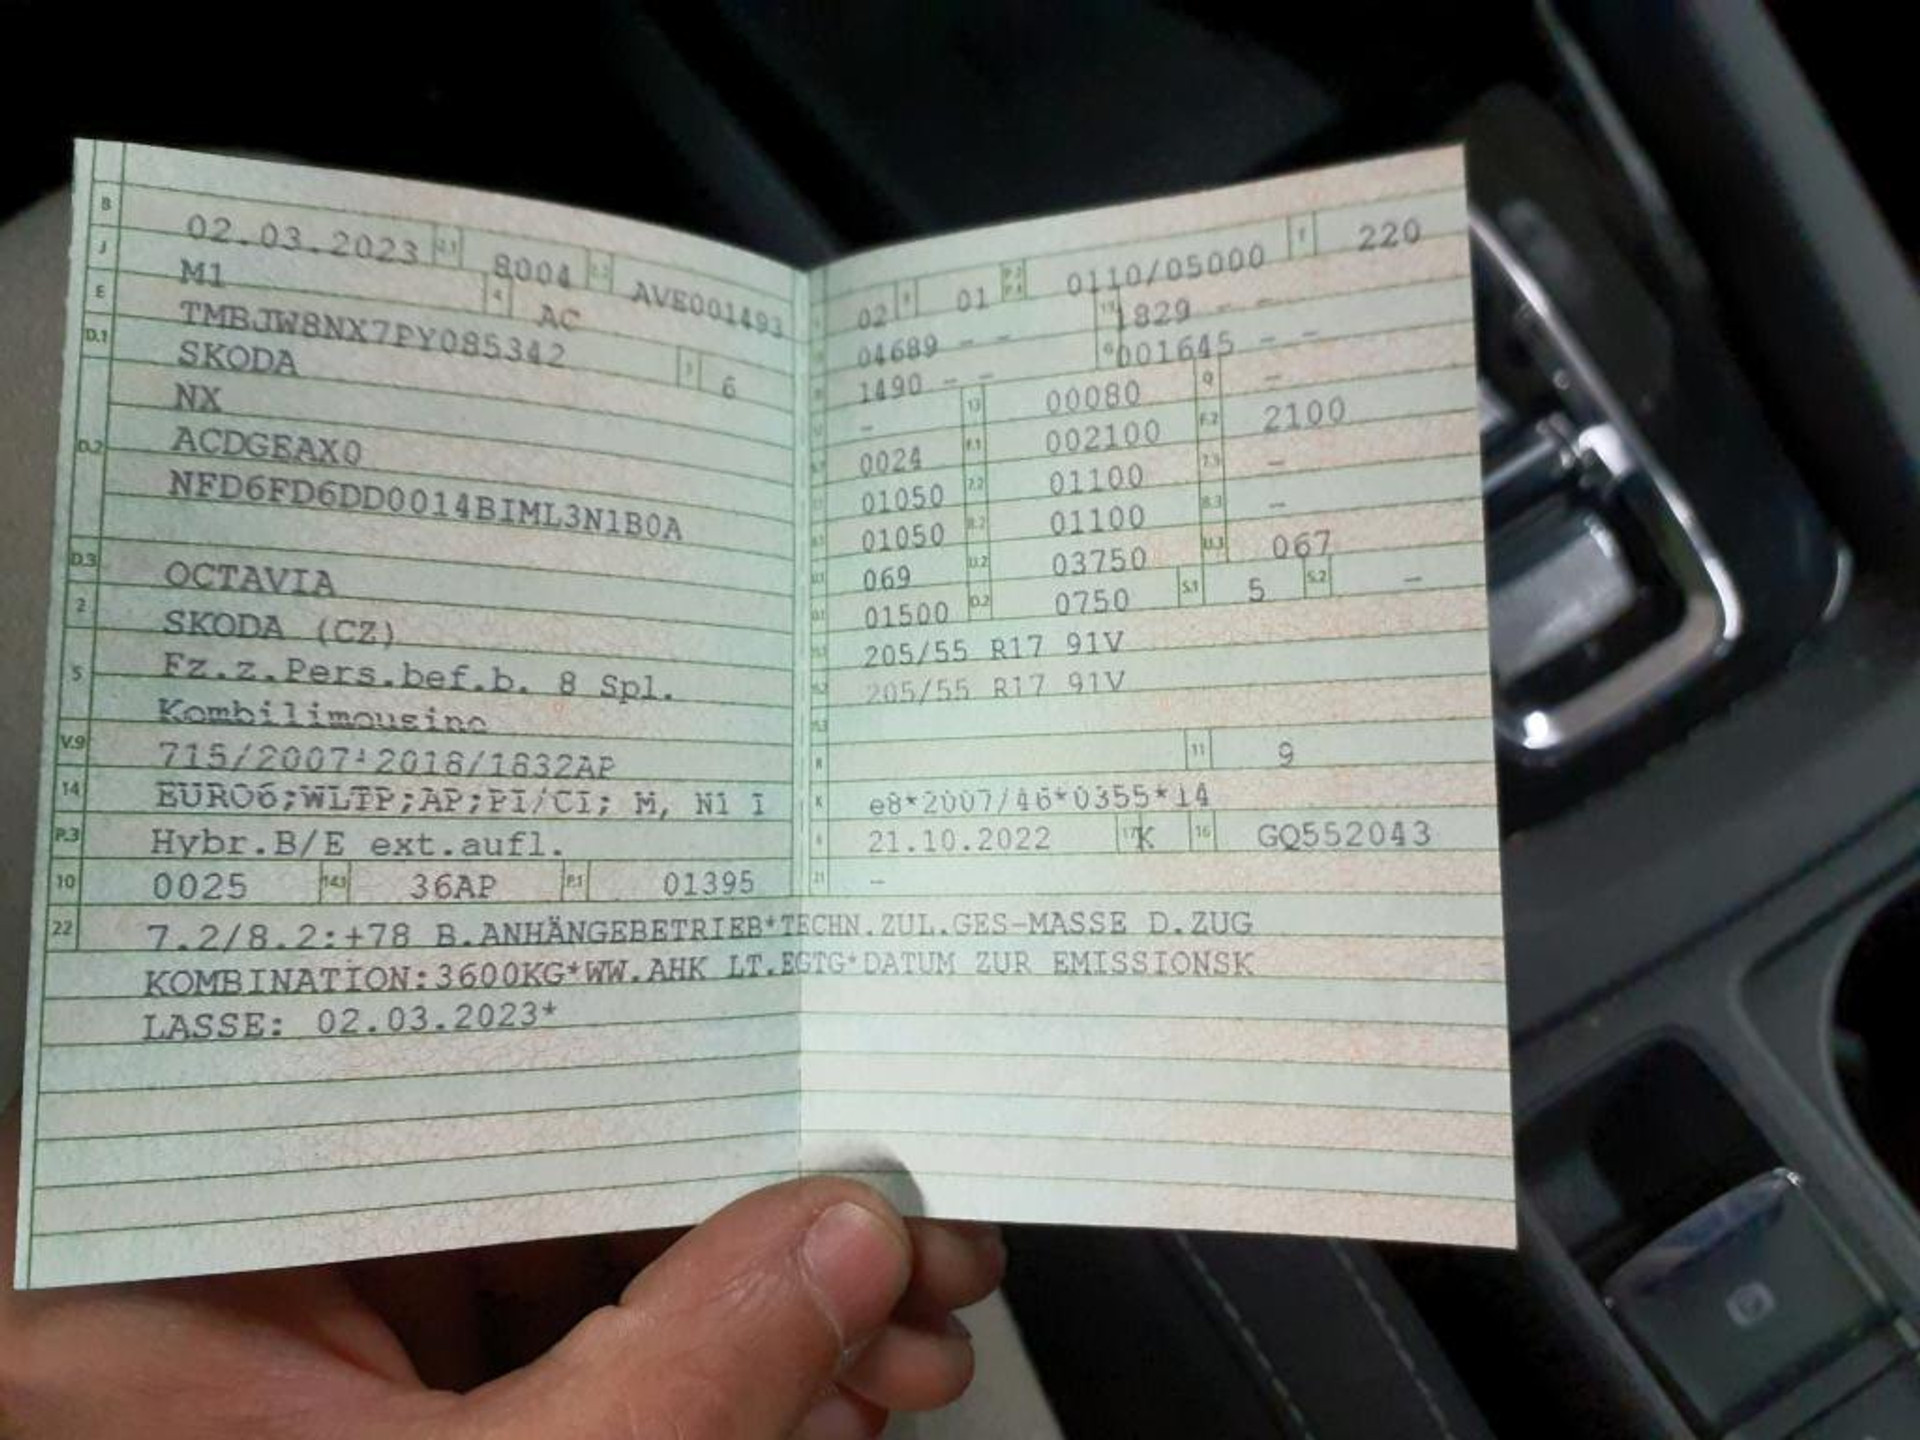 B 02.03.2023 2.1 8004 2.2 AVE001493
J M1 4 AC
E TMBJW8NX7PY085342 3 6
D.1 SKODA
NX
D.2 ACDGEAX0
NFD6FD6DD0014BIML3N1B0A
D.3 OCTAVIA
2 SKODA (CZ)
5 Fz.z.Pers.bef.b. 8 Spl.
Kombilimousine
V.9 715/2007*2018/1832AP
14 EURO6;WLTP;AP;PI/CI; M, N1 I
P.3 Hybr.B/E ext.aufl.
10 0025 14.1 36AP P.1 01395
22 7.2/8.2:+78 B.ANHÄNGEBETRIEB*TECHN.ZUL.GES-MASSE D.ZUG
KOMBINATION:3600KG*WW.AHK LT.EGTG*DATUM ZUR EMISSIONSK
LASSE: 02.03.2023*
02 9 01 P.2 P.4 0110/05000 T 220
04689 - - 19 1829 - -
1490 - - G 001645 - -
- 13 00080 Q -
0024 F.1 002100 F.2 2100
01050 7.2 01100 7.3 -
01050 8.2 01100 8.3 -
069 U.2 03750 U.3 067
01500 O.2 0750 S.1 5 S.2 -
205/55 R17 91V
205/55 R17 91V
R 11 9
K e8*2007/46*0355*14
6 21.10.2022 17 K 16 GQ552043
21 -